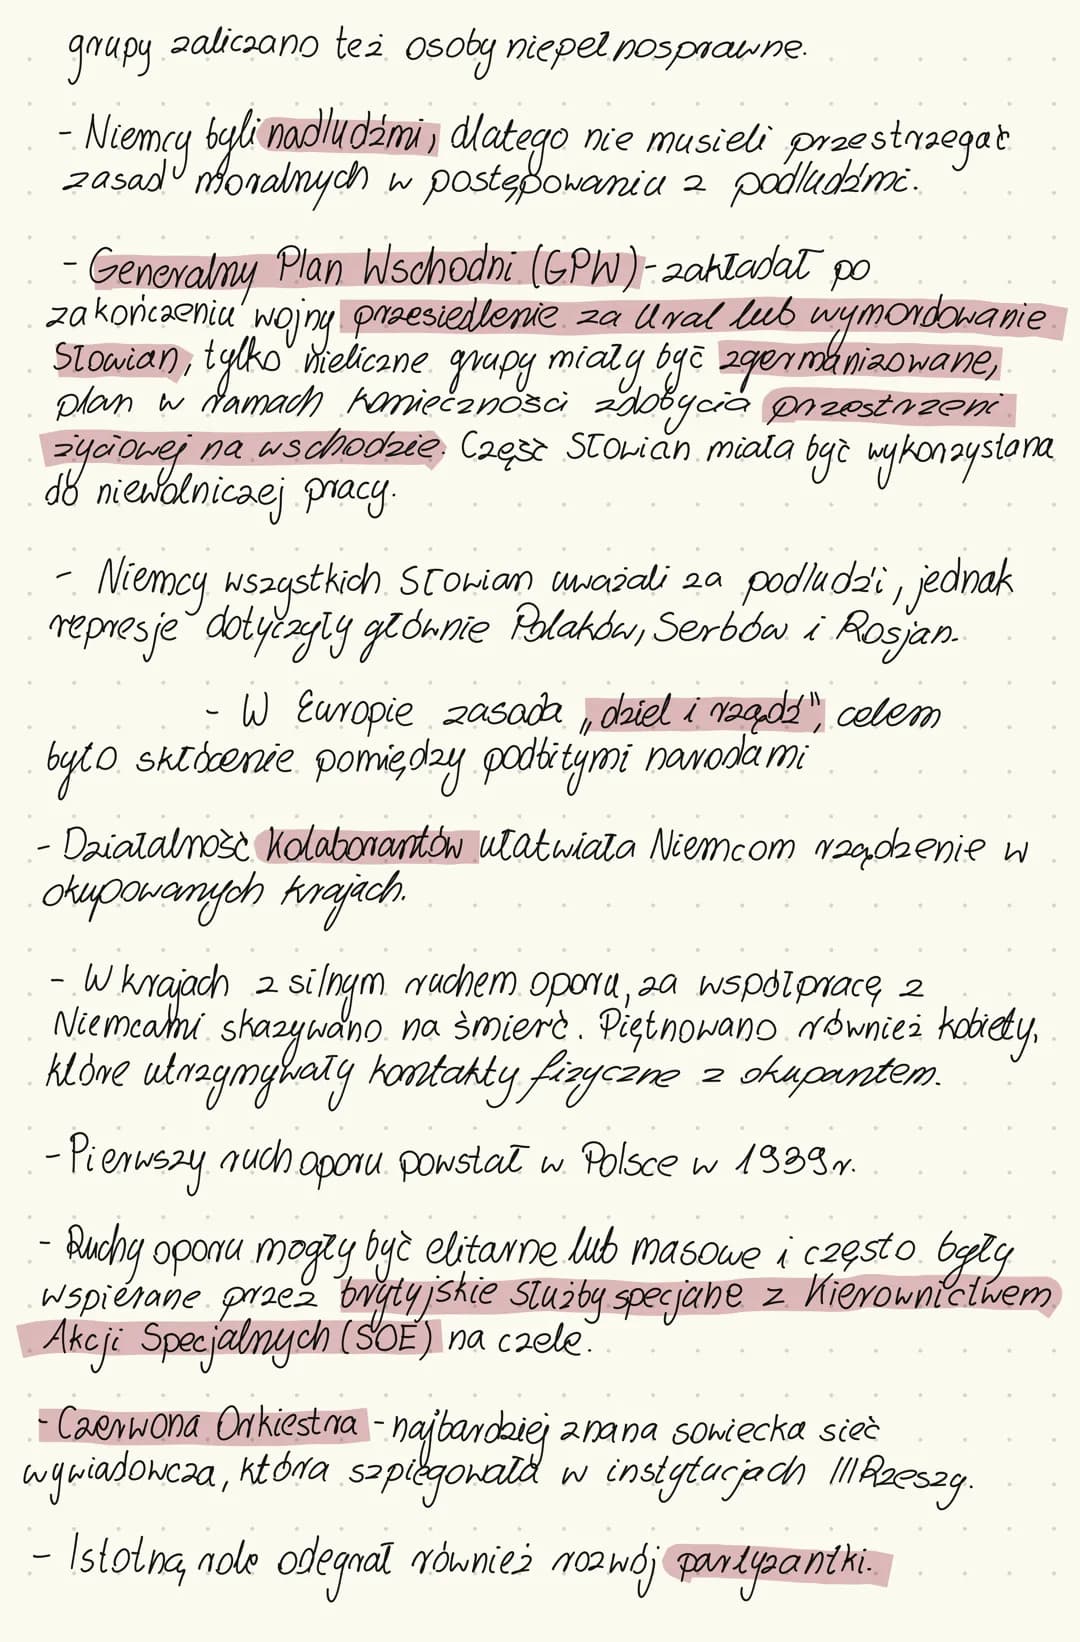 grupy zaliczano też osoby niepełnosprawne.
- Niemcy byli nadludźmi, dlatego nie musieli przestrzegać
zasad moralnych w postępowaniu z podludźmi.
- Generalny Plan Wschodni (GPW) - zakładał po
zakończeniu wojny przesiedlenie za Ural lub wymordowanie
Słowian, tylko nieliczne grupy miały być zgermanizowane,
plan w ramach konieczności zdobycia przestrzeni
życiowej na wschodzie. Część Słowian miała być wykorzystana
do niewolniczej pracy.
- Niemcy wszystkich Słowian uważali za podludzi, jednak
represje dotyczyły głównie Polaków, Serbów i Rosjan.
- W Europie zasada „dziel i rządź", celem
było skłócenie pomiędzy podbitymi narodami
- Działalność kolaborantów ułatwiała Niemcom rządzenie w
okupowanych krajach.
- W krajach z silnym ruchem oporu, za współpracę z
Niemcami skazywano na śmierć. Piętnowano również kobiety,
które utrzymywały kontakty fizyczne z okupantem.
- Pierwszy ruch oporu powstał w Polsce w 1939 r.
- Ruchy oporu mogły być elitarne lub masowe i często były
wspierane przez brytyjskie służby specjane z Kierownictwem
Akcji Specjalnych (SOE) na czele.
- Czerwona Orkiestra - najbardziej znana sowiecka sieć
wywiadowcza, która szpiegowała w instytucjach III Rzeszy.
- Istotną role odegrał również rozwój partyzantki.